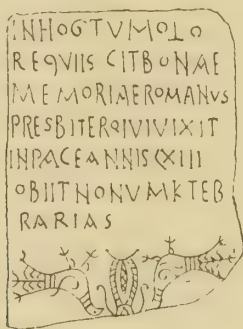 INHOGTVMOLO
REQVIIS CIT BONAE
MEMORIAE ROMANVS
PRESBITERQIVIVIXIT
INPACE ANNIS LXIII
OBIIT NONVM K FEB
RARIAS